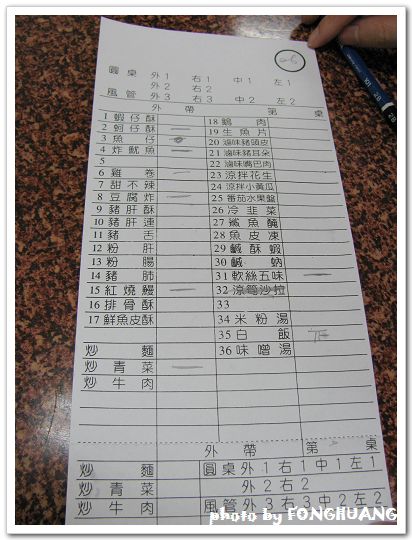 26
圓桌 外1 右1 中1 左1
外2 右2
風管 外3 右3 中2 左2
外帶 第 桌
1 蝦仔酥 一
2 蚵仔酥 一
3 魚仔
4 炸魷魚 一
5
6 雞卷 一
7 甜不辣
8 豆腐炸 一
9 豬肝酥
10 豬肝連
11 豬舌
12 粉肝
13 粉腸
14 豬肺
15 紅燒鰻 一
16 排骨酥
17 鮮魚皮酥
18 鵝肉
19 生魚片
20 滷味豬頭皮
21 滷味豬耳朵
22 滷味嘴巴肉
23 涼拌花生
24 涼拌小黃瓜
25 番茄水果盤
26 冷韭菜
27 鯊魚醃
28 魚皮凍
29 鹹酥蝦
30 鹹蚋
31 軟絲五味 一
32 涼筍沙拉
33
34 米粉湯
35 白飯 下
36 味噌湯
炒麵
炒青菜 一
炒牛肉
外帶 第 桌
炒麵 圓桌 外1 右1 中1 左1
炒青菜 外2 右2
炒牛肉 風管 外3 右3 中2 左2
photo by FONGHUANG